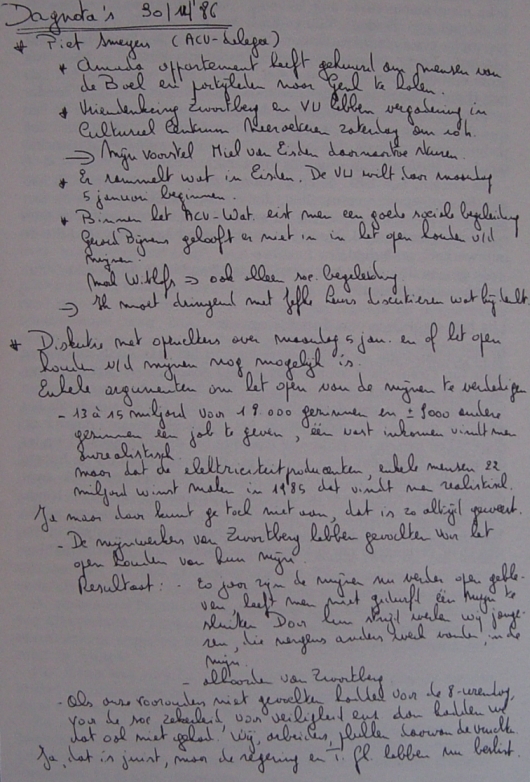 Dagnota's 30/12/86
* Piet Smeyers (ACV-delegee)
* Amada appartement heeft gehuurd om mensen van
de Boel en partijleden naar Genk te halen.
* Vriendenkring Zwartberg en VU hebben vergadering in
Cultureel Centrum Meeroeteren zaterdag om 10 h.
→ Mijn voorstel Miel van Eisden daarnaartoe sturen.
* Er rammelt wat in Eisden. De VU wilt daar maandag
5 januari beginnen.
* Binnen het ACV-Wat. eist men een goede sociale begeleiding
Gerard Bijnens gelooft er niet in in het open houden v/d
mijnen.
Mal Withofs → ook alleen soc. begeleiding
→ Ik moet dringend met Jefke Leurs discutieren wat hij denkt.
* Diskutie met opvielkers over maandag 5 jan. en of het open
houden v/d mijnen nog mogelijk is.
Enkele argumenten om het open van de mijnen te verdedigen
- 13 à 15 miljard voor 19.000 gezinnen en ± 9000 andere
gezinnen een job te geven, één vast inkomen vindt men
onrealistisch.
maar dat de elektriciteitproducenten, enkele mensen 22
miljard winst maken in 1985 dat vindt men realistisch.
Ja maar daar kunt ge toch niet aan, dat is zo altijd geweest.
- De mijnwerkers van Zwartberg hebben gevochten voor het
open houden van hun mijn.
Resultaat: - 20 jaar zijn de mijnen nu verder open geble-
ven, heeft men niet gedurfd één mijn te
sluiten Door hun strijd werken wij jonge-
ren, die nergens anders werk vonden, in de
mijn.
- akkoorden van Zwartberg
- Als onze voorouders niet gevochten hadden voor de 8-urendag,
voor de soc zekerheid, voor veiligheid enz dan hadden we
dat ook niet gehad. Wij, arbeiders, plukken daarvan de vruchten
Ja, dat is juist, maar de regering en T. Gh. hebben nu beslist.